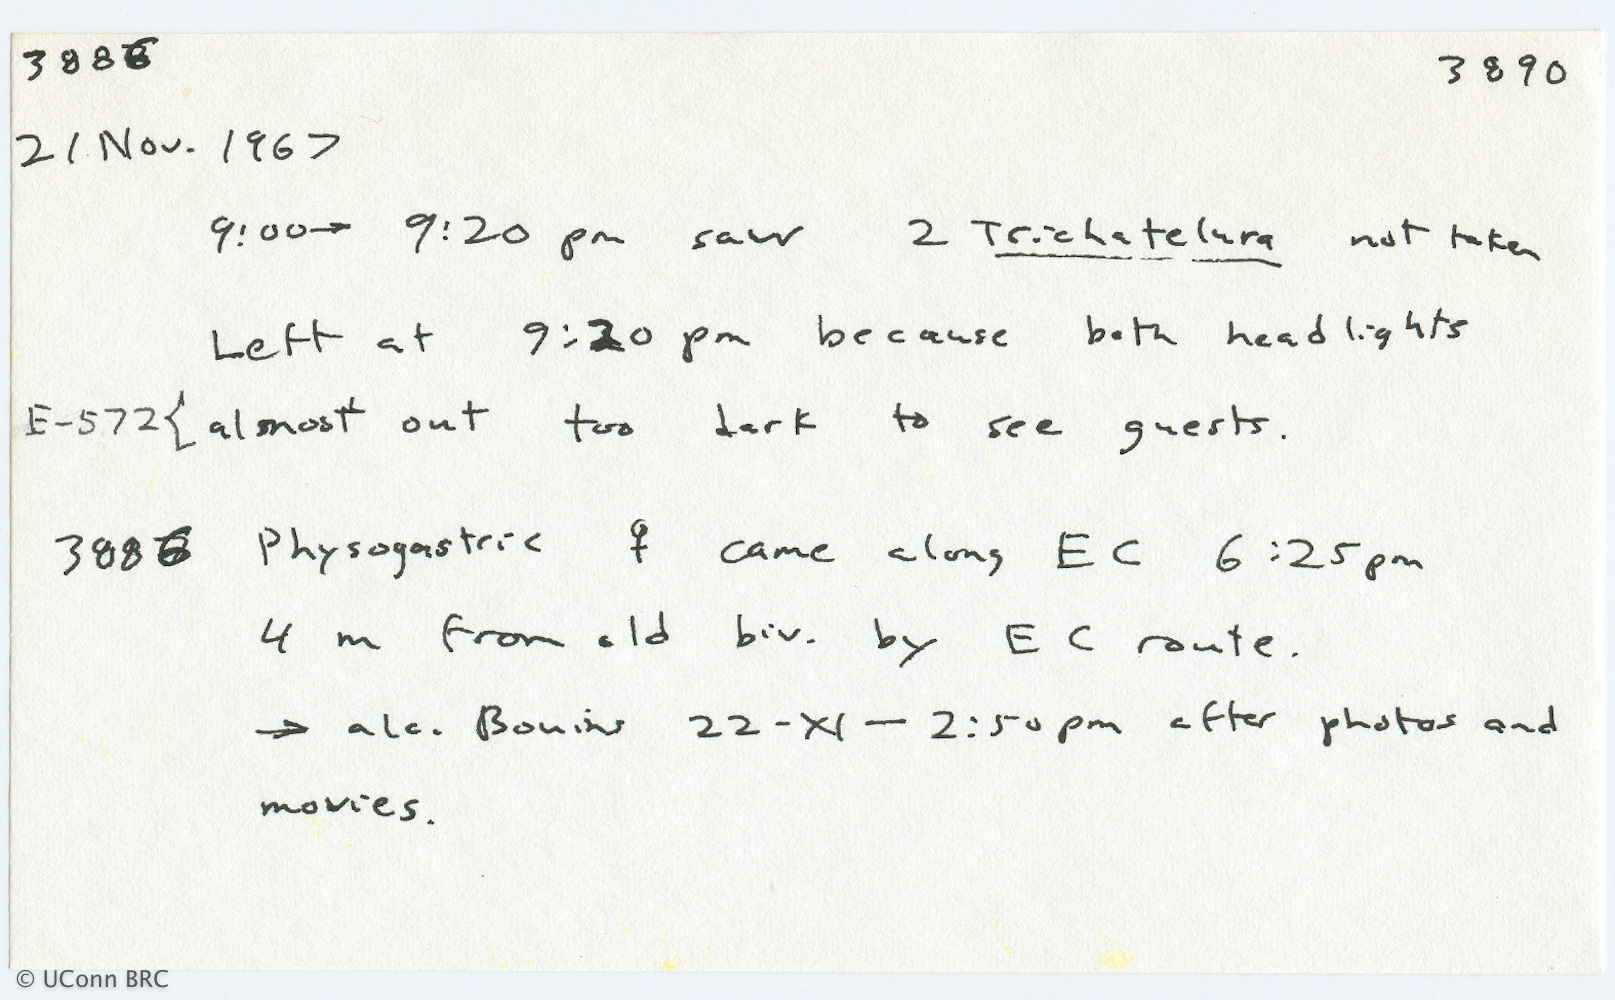 3886 3890
21 Nov. 1967
9:00→ 9:20 pm saw 2 Trichatelura not taken
Left at 9:20 pm because both headlights
E-572{ almost out too dark to see guests.
3886 Physogastric ♀ came along EC 6:25pm
4 m from old biv. by EC route.
→ alc. Bouins 22-XI-2:50pm after photos and
movies.
© UConn BRC